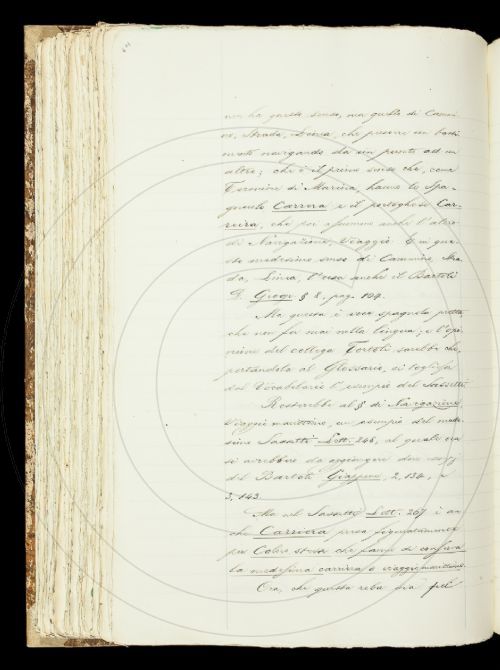 non ha questo senso, ma quello di Cammi-
no, Strada, Linea, che presero un basti-
mento navigando da un punto ad un
altro; che è il primo senso che, come
Termine di Marina, hanno lo Spa-
gnuolo Carrera e il portoghese Car-
reira, che poi assunsero anche l'altro
di Navigazione, Viaggio. E in que-
sto medesimo senso di Cammino, Stra-
da, Linea, l'usa anche il Bartoli
Giogr § 2, pag. 104.
Ma questa è voce spagnola pretta
che non fu mai nella lingua; e l'opi-
nione del collega Tortoli sarebbe che,
portandola al Glossario, si toglisse
dal Vocabolario l'esempio del Sassetti.
Resterebbe al § di Navigazione,
Viaggio marittimo, un esempio del mede-
simo Sassetti Lett. 246, al quale ora
si avrebbero da aggiungere due
del Bartoli Giappone, 2, 134, e
3, 143.
Ma nel Sassetti Lett. 267 è an-
che Carriera presa figuratamente
per Coloro stessi che fanno di conserva
la medesima carriera o viaggio marittimo.
Ora, che questa roba sia nel